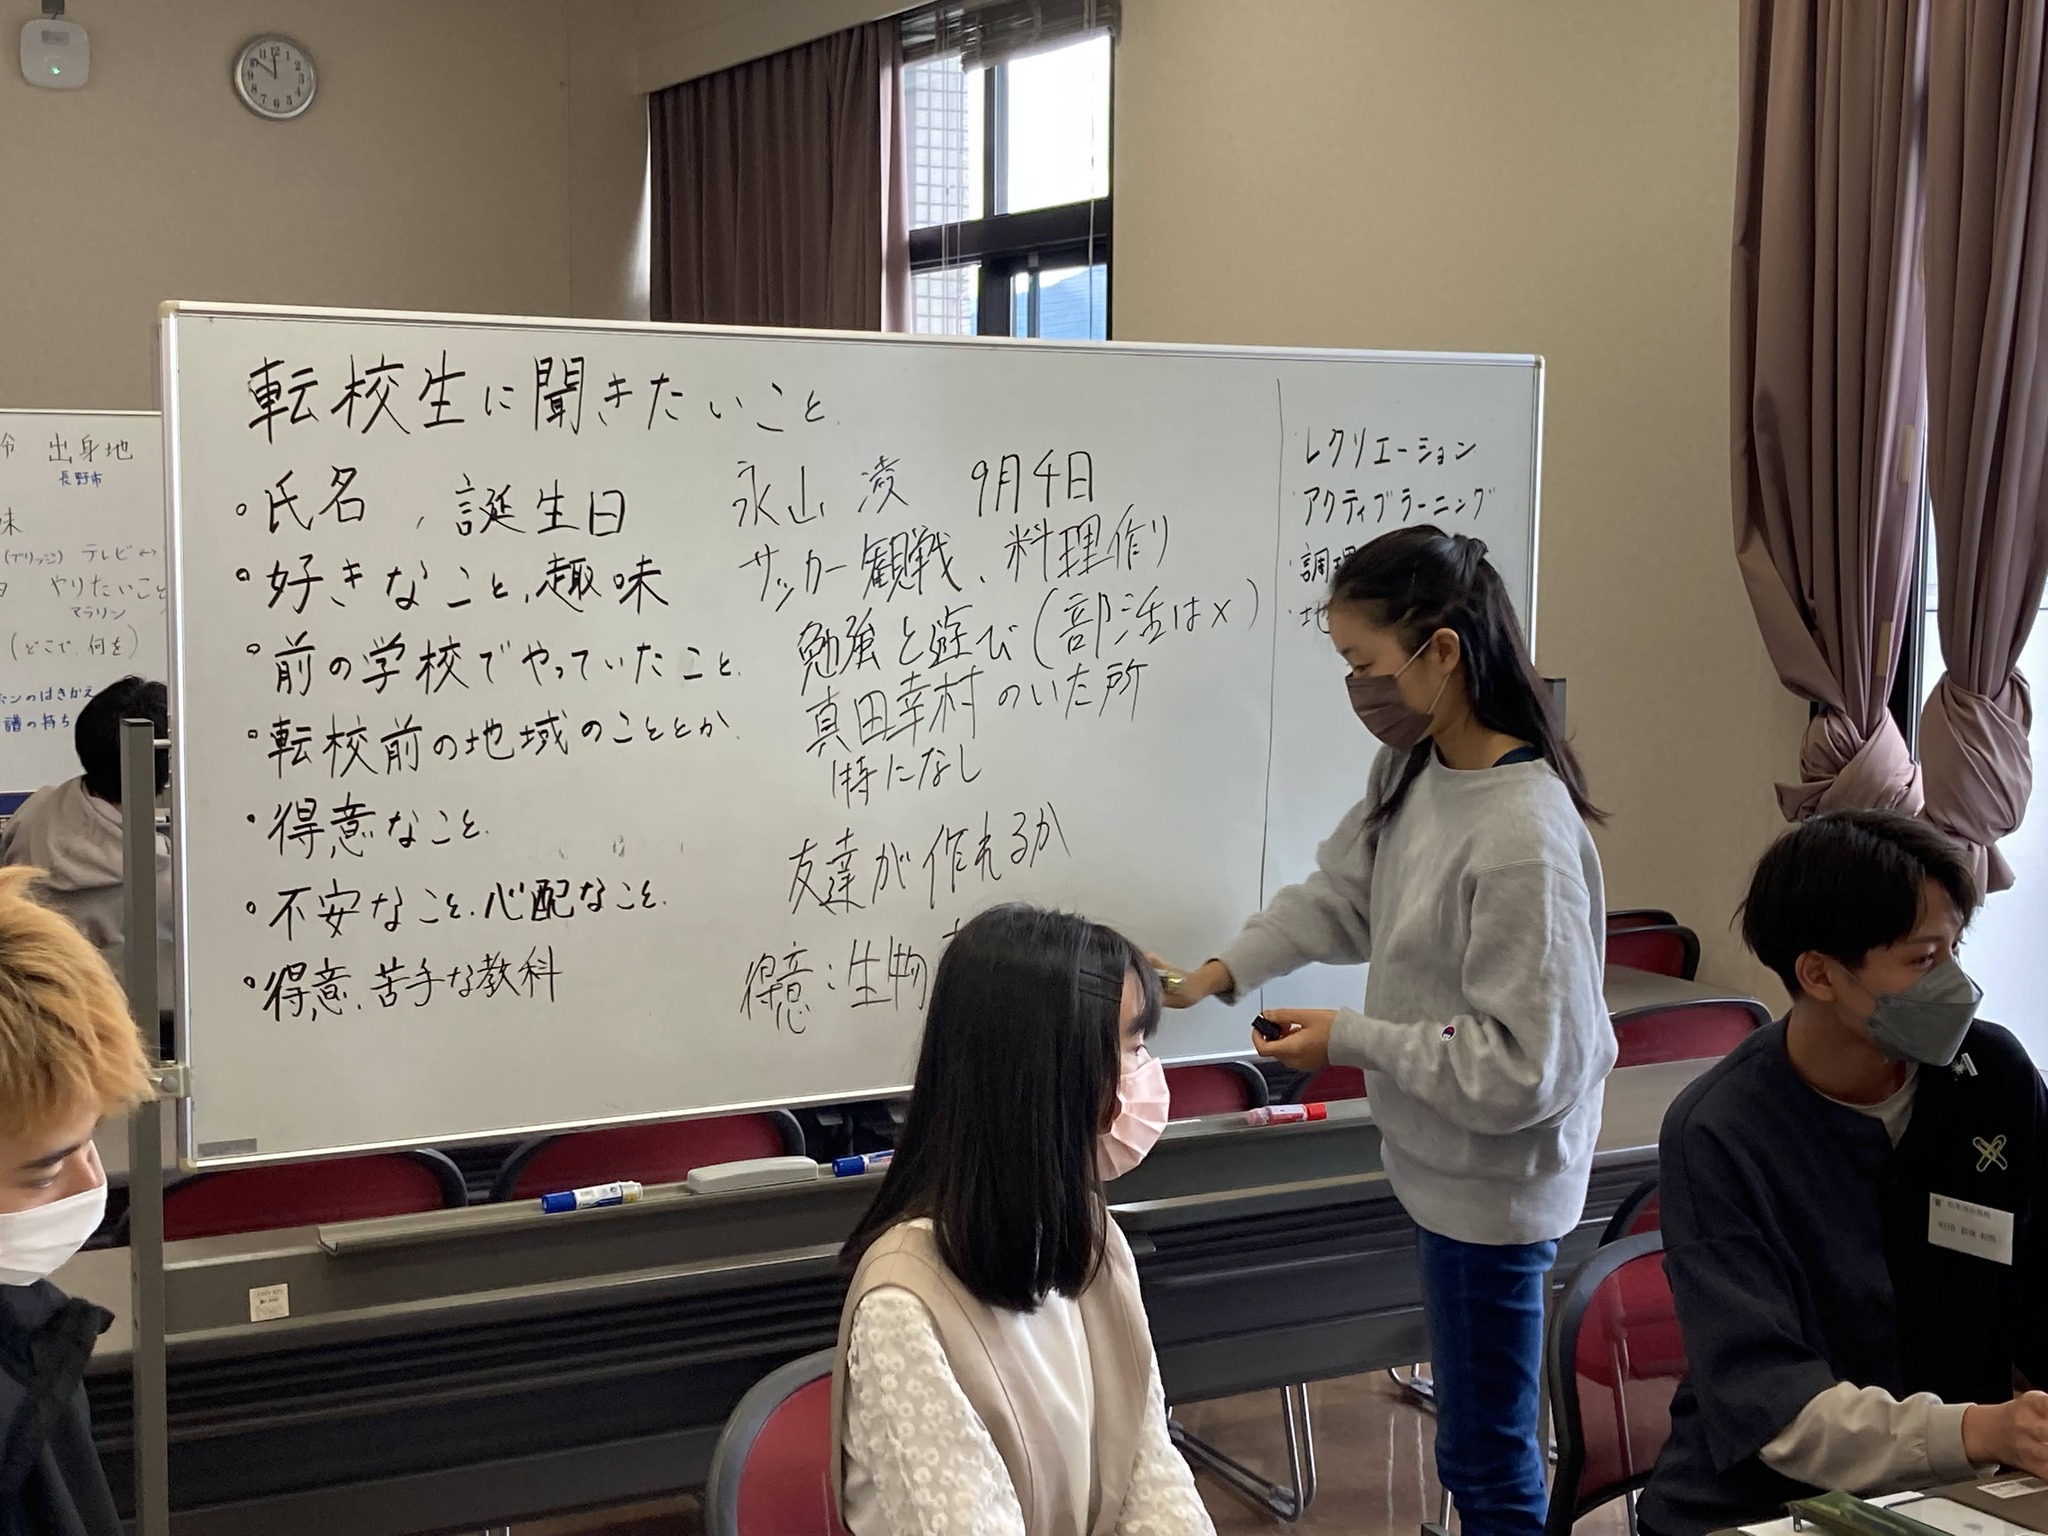 転校生に聞きたいこと.
・氏名、誕生日
永山 凌 9月4日
・好きなこと、趣味
サッカー観戦、料理作り
・前の学校でやっていたこと.
勉強と遊び(部活は×)
・転校前の地域のこととか.
真田幸村のいた所
・得意なこと.
特になし
・不安なこと.心配なこと.
友達が作れるか
・得意、苦手な教科
得意:生物
レクリエーション
・アクティブラーニング
・調理
・地
出身地
長野市
味
(ブリッジ) テレビ
やりたいこと
マラソン
(どこで、何を)
のはきかえ
譜の持ち